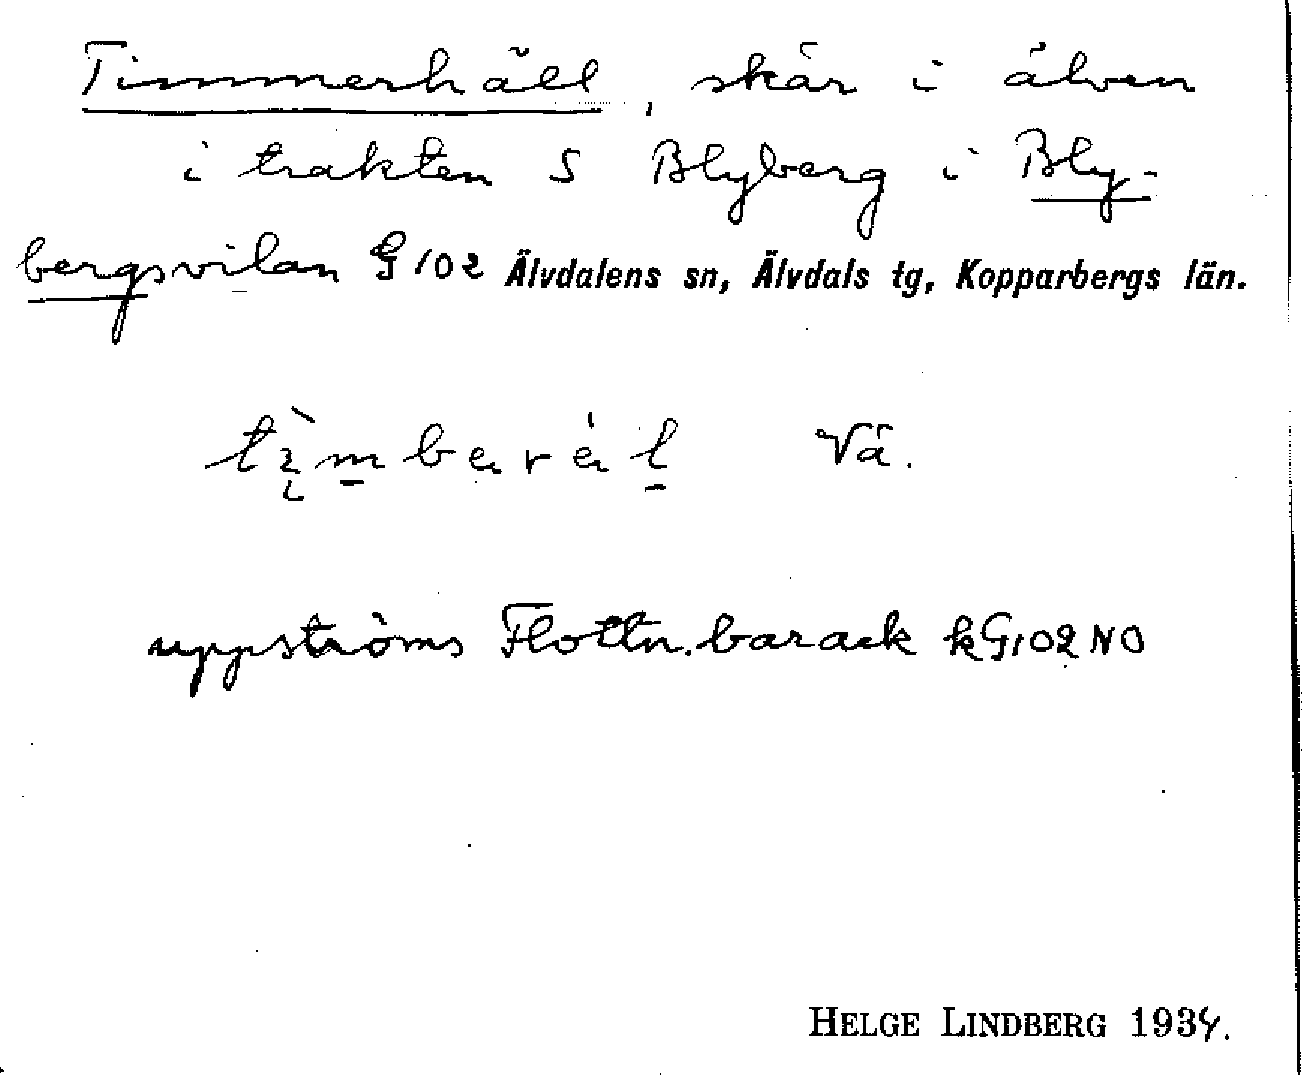 Timmerhäll, skär i älven
i trakten S Blyberg i Bly-
bergsvilan G 102 Älvdalens sn, Älvdals tg, Kopparbergs län.
Vä.
uppströms Flottn.barack kG102 NO
HELGE LINDBERG 1934.